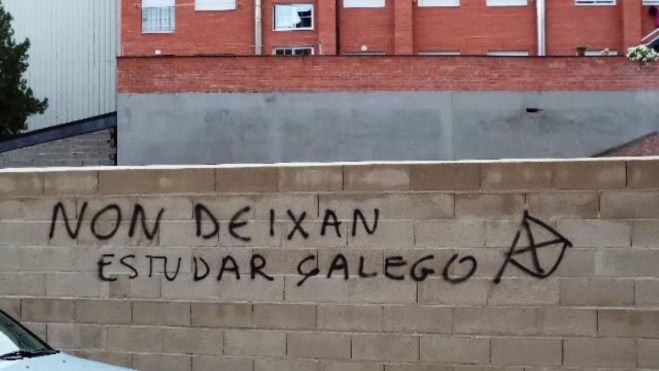 NON DEIXAN
ESTUDAR GALEGO